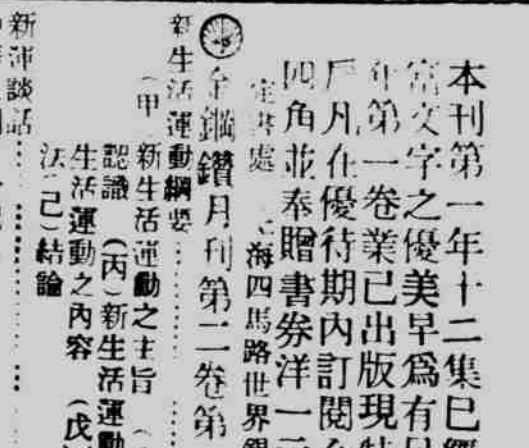 本刊第一年十二集已
富文字之優美早爲有
年第一卷業已出版現
戶凡在優待期內訂閱
四角並奉贈書券洋一元
定書處 上海四馬路世界
金鋼鑽月刊第二卷第
新生活運動綱要
(甲 新生活運動之主旨
認識 (丙)新生活運動
生活運動之內容 (戊
法 (己)結論
新運談話